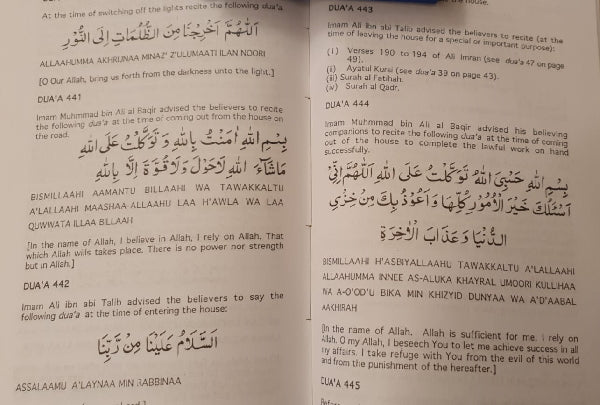 At the time of switching off the lights recite the following dua'a
اَللّٰهُمَّ اَخْرِجْنَا مِنَ الظُّلُمَاتِ اِلَى النُّوْرِ
ALLAAHUMMA AKHRIJNAA MINAZ' Z'ULUMAATI ILAN NOORI
[O Our Allah, bring us forth from the darkness unto the light.]
DUA'A 441
Imam Muhmmad bin Ali al Baqir advised the believers to recite
the following dua'a at the time of coming out from the house on
the road.
بِسْمِ اللهِ اٰمَنْتُ بِاللهِ وَتَوَكَّلْتُ عَلَى اللهِ
مَاشَآءَ اللهُ لَاحَوْلَ وَلَا قُوَّةَ اِلَّا بِاللهِ
BISMILLAAHI AAMANTU BILLAAHI WA TAWAKKALTU
A'LALLAAHI MAASHAA-ALLAAHU LAA H'AWLA WA LAA
QUWWATA ILLAA BILLAAH
[In the name of Allah, I believe in Allah, I rely on Allah. That
which Allah wills takes place. There is no power nor strength
but in Allah.]
DUA'A 442
Imam Ali ibn abi Talib advised the believers to say the
following dua'a at the time of entering the house:
اَلسَّلَامُ عَلَيْنَا مِنْ رَّبِّنَا
ASSALAAMU A'LAYNAA MIN RABBINAA
the house.
DUA'A 443
Imam Ali ibn abi Talib advised the believers to recite (at the
time of leaving the house for a special or important purpose):
(i) Verses 190 to 194 of Ali Imran (see dua'a 47 on
page 49).
(ii) Ayatul Kursi (see dua'a 39 on page 43).
(iii) Surah al Fatihah.
(iv) Surah al Qadr.
DUA'A 444
Imam Muhmmad bin Ali al Baqir advised his believing
companions to recite the following dua'a at the time of coming
out of the house to complete the lawful work on hand
successfully.
بِسْمِ اللهِ حَسْبِيَ اللهُ تَوَكَّلْتُ عَلَى اللهِ اَللّٰهُمَّ اِنِّيْ
اَسْئَلُكَ خَيْرَ الْاُمُوْرِ كُلِّهَا وَاَعُوْذُ بِكَ مِنْ خِزْيِ
الدُّنْيَا وَعَذَابِ الْاٰخِرَةِ
BISMILLAAHI H'ASBIYALLAAHU TAWAKKALTU A'LALLAAHI
ALLAAHUMMA INNEE AS-ALUKA KHAYRAL UMOORI KULLIHAA
WA A-O'OD'U BIKA MIN KHIZYID DUNYAA WA A'D'AABAL
AAKHIRAH
[In the name of Allah. Allah is sufficient for me. I rely on
Allah. O my Allah, I beseech You to let me achieve success in all
my affairs. I take refuge with You from the evil of this world
and from the punishment of the hereafter.]
DUA'A 445